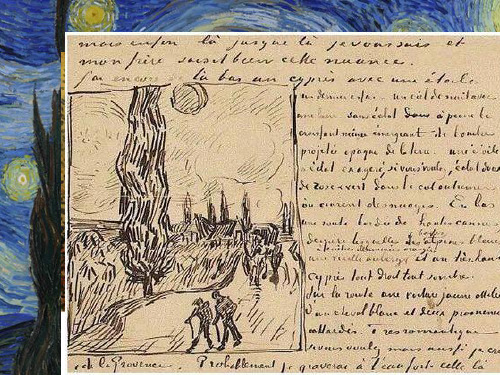 mais enfin là jusque là je voussuis et
mon frère saisit bien cette nuance.
J'ai encore de là bas un cyprès avec une étoile
un dernier essai - un ciel de nuit avec
une lune sans éclat à peine le
croissant mince émergeant de l'ombre
projetée opaque de la terre - une étoile
à éclat exagéré si vous voulez, éclat doux
de rose et vert dans le ciel outremer
où courent des nuages. En bas
une route bordée de hautes cannes
derrière lesquelles les alpines bleues
une vieille auberge et un très haut
cyprès tout droit tout sombre.
Sur la route une voiture jaune attelée
d'un cheval blanc et deux promeneurs
attardés très romantique
si vous voulez, mais aussi je crois
de la Provence. Probablement je graverai à l'eau forte celle là